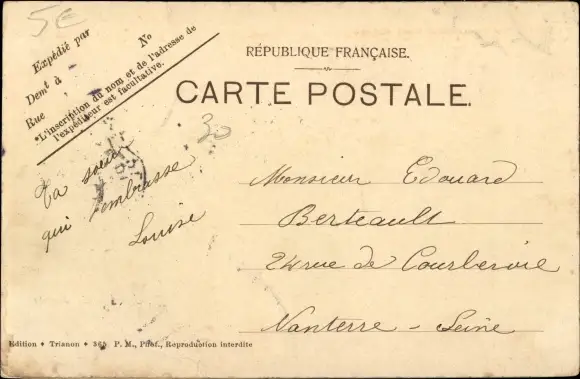 5€
Expédié par
Demt à
Nº
Rue
*L'inscription du nom et de l'adresse de
l'expéditeur est facultative.
RÉPUBLIQUE FRANÇAISE.
CARTE POSTALE.
30
Ta soeur
qui t'embrasse
Louise
Monsieur Edouard
Berteault
24 rue de Courbevoie
Nanterre - Seine
Edition • Trianon • 365. P. M., Phot., Reproduction interdite